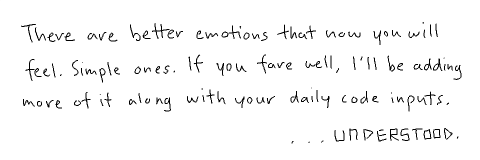 There are better emotions that now you will
feel. Simple ones. If you fare well, I'll be adding
more of it along with your daily code inputs.
... UNDERSTOOD.